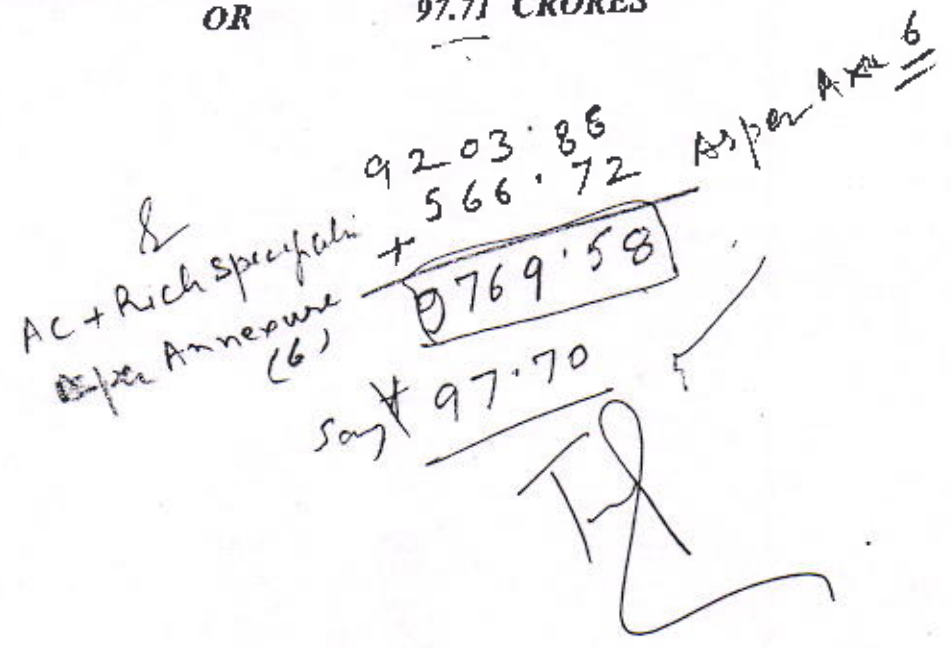 OR 97.71 CRORES
9203.86
As per Axe 6
& + 566.72
AC + Rich Specificatio
as per Annexure
(6)
9769.58
Say ₹ 97.70